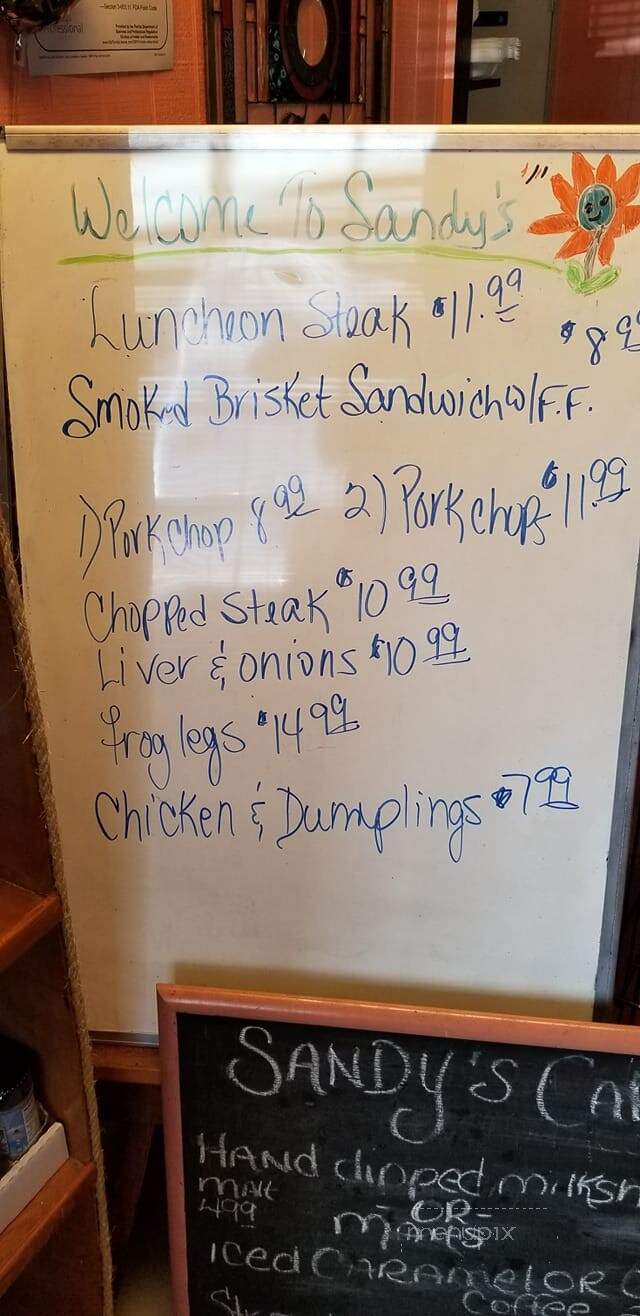 Welcome To Sandy's
Luncheon Steak $11.99
$8.9
Smoked Brisket Sandwich w/F.F.
1) Pork chop 8 99 2) Pork chops $11 99
Chopped Steak $10 99
Liver & onions $10 99
frog legs $14 99
Chicken & Dumplings $7 99
SANDY'S Ca
HAND dipped milksh
malt OR
499
menupix
iced CARAMEL OR
Coffee